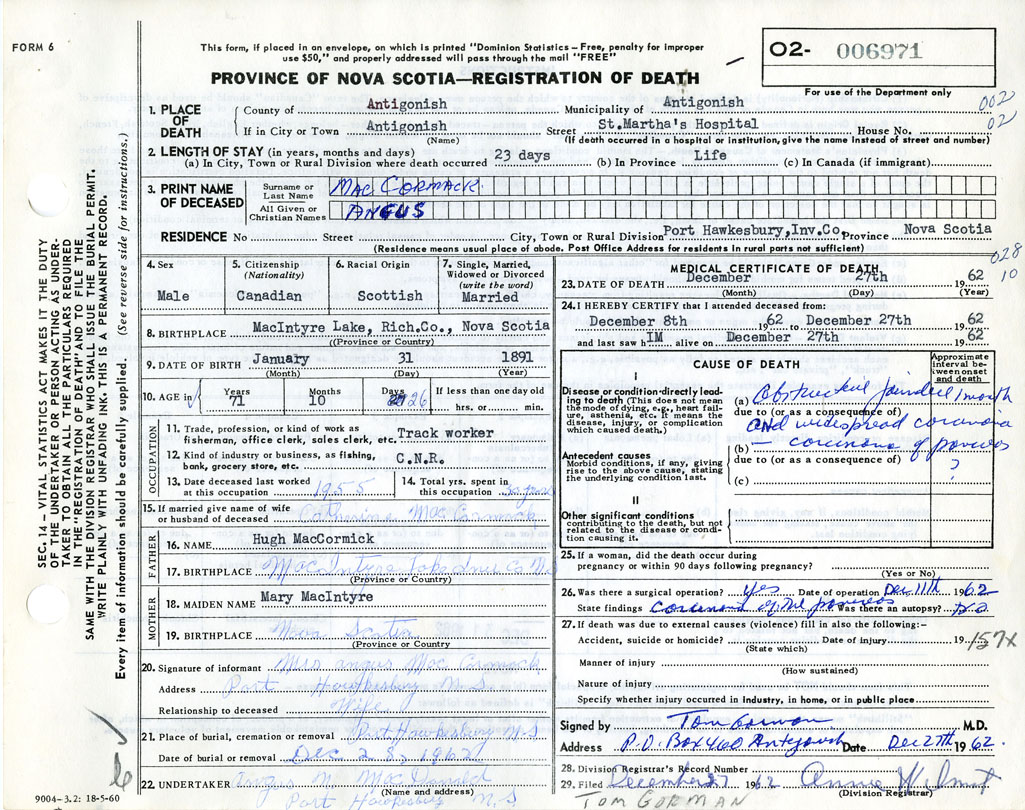 FORM 6
This form, if placed in an envelope, on which is printed "Dominion Statistics – Free, penalty for improper
use $50," and properly addressed will pass through the mail "FREE"
O2- 006971
For use of the Department only
PROVINCE OF NOVA SCOTIA—REGISTRATION OF DEATH
002
02
1. PLACE OF DEATH
County of Antigonish Municipality of Antigonish
If in City or Town Antigonish Street St.Martha's Hospital House No.
(Name) (If death occurred in a hospital or institution, give the name instead of street and number)
2. LENGTH OF STAY (in years, months and days)
(a) In City, Town or Rural Division where death occurred 23 days (b) In Province Life (c) In Canada (if immigrant)
3. PRINT NAME OF DECEASED
Surname or Last Name MAC CORMACK
All Given or Christian Names ANGUS
RESIDENCE No Street City, Town or Rural Division Port Hawkesbury,Inv.Co. Province Nova Scotia
(Residence means usual place of abode. Post Office Address for residents in rural parts not sufficient)
4. Sex Male
5. Citizenship (Nationality) Canadian
6. Racial Origin Scottish
7. Single, Married, Widowed or Divorced (write the word) Married
8. BIRTHPLACE MacIntyre Lake, Rich.Co., Nova Scotia
(Province or Country)
9. DATE OF BIRTH January 31 1891
(Month) (Day) (Year)
10. AGE in Years 71 Months 10 Days 26 If less than one day old
hrs. or min.
OCCUPATION
11. Trade, profession, or kind of work as
fisherman, office clerk, sales clerk, etc. Track worker
12. Kind of industry or business, as fishing,
bank, grocery store, etc. C.N.R.
13. Date deceased last worked
at this occupation 1955
14. Total yrs. spent in
this occupation
15. If married give name of wife
or husband of deceased Catherine MacCormack
FATHER
16. NAME Hugh MacCormick
17. BIRTHPLACE MacIntyre Lake Inv Co N.S
(Province or Country)
MOTHER
18. MAIDEN NAME Mary MacIntyre
19. BIRTHPLACE Nova Scotia
(Province or Country)
20. Signature of informant Mrs Angus MacCormack
Address Port Hawkesbury N.S
Relationship to deceased Wife
21. Place of burial, cremation or removal Port Hawkesbury N.S
Date of burial or removal Dec 28, 1962
22. UNDERTAKER Angus N. MacDonald
(Name and address)
Port Hawkesbury N.S
028
10
MEDICAL CERTIFICATE OF DEATH
23. DATE OF DEATH December 27th 1962
(Month) (Day) (Year)
24. I HEREBY CERTIFY that I attended deceased from:
December 8th 1962 to December 27th 1962
and last saw hIM alive on December 27th 1962
CAUSE OF DEATH
Approximate interval between onset and death
I
Disease or condition directly leading to death (This does not mean
the mode of dying, e.g., heart failure, asthenia, etc. It means the
disease, injury, or complication
which caused death.)
(a) Obstructive jaundice 1 month
due to (or as a consequence of)
and widespread carcinoma
Antecedent causes
Morbid conditions, if any, giving
rise to the above cause, stating
the underlying condition last.
(b) carcinoma of pancreas
due to (or as a consequence of) ?
(c)
II
Other significant conditions
contributing to the death, but not
related to the disease or condition causing it.
25. If a woman, did the death occur during
pregnancy or within 90 days following pregnancy?
(Yes or No)
26. Was there a surgical operation? Yes Date of operation Dec 11th 1962
State findings carcinoma of the pancreas Was there an autopsy? No
27. If death was due to external causes (violence) fill in also the following:-
Accident, suicide or homicide? Date of injury 19
(State which)
157X
Manner of injury
(How sustained)
Nature of injury
Specify whether injury occurred in industry, in home, or in public place
Signed by Tom Gorman M.D.
Address P.O. Box 460 Antigonish Date Dec 27th 1962.
28. Division Registrar's Record Number
29. Filed December 27 1962
(Division Registrar)
TOM GORMAN
SEC. 14 – VITAL STATISTICS ACT MAKES IT THE DUTY
OF THE UNDERTAKER OR PERSON ACTING AS UNDERTAKER TO OBTAIN ALL THE PARTICULARS REQUIRED
IN THE "REGISTRATION OF DEATH" AND TO FILE THE
SAME WITH THE DIVISION REGISTRAR WHO SHALL ISSUE THE BURIAL PERMIT.
WRITE PLAINLY WITH UNFADING INK. THIS IS A PERMANENT RECORD.
Every item of information should be carefully supplied. (See reverse side for instructions.)
9004-3.2: 18-5-60